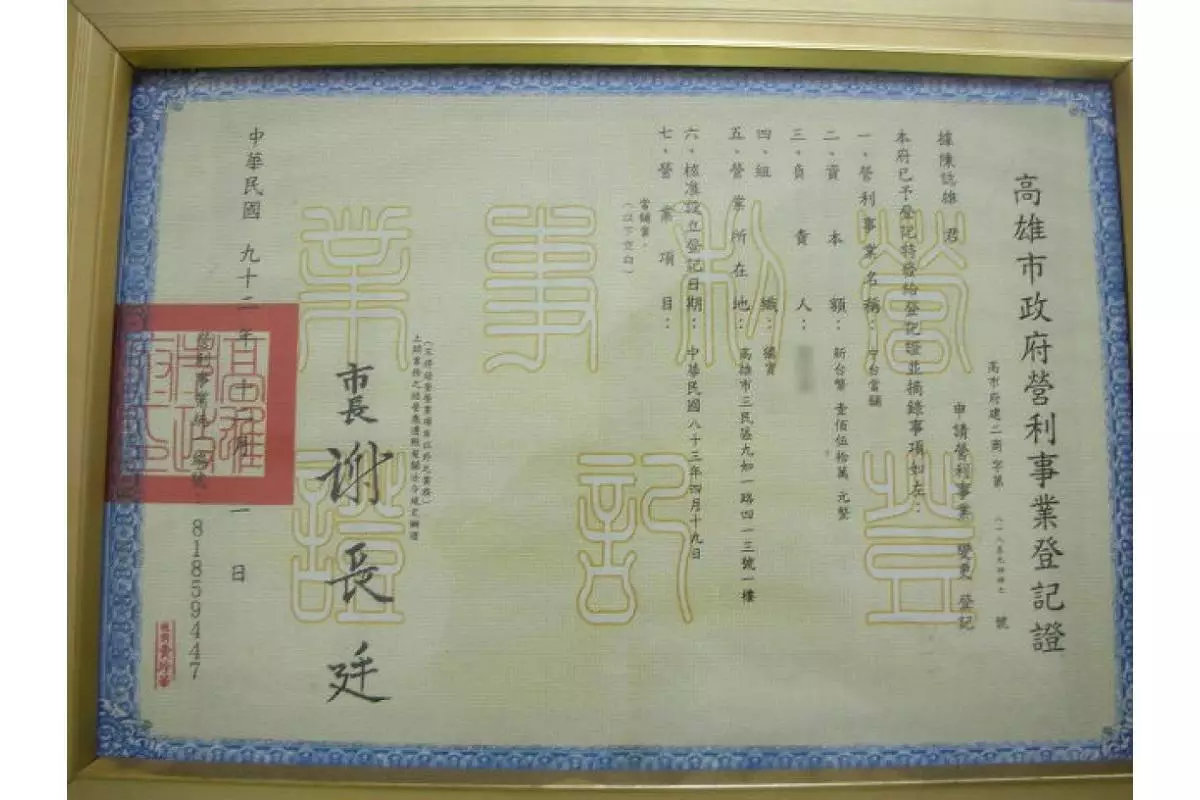 高雄市政府營利事業登記證
高市府建二商字第 號
據陳誌雄 君 申請營利事業 變更 登記
本府已予登記特發給登記證並摘錄事項如左：
一、營利事業名稱：亨台當鋪
二、資本額：新台幣 壹佰伍拾萬 元整
三、負責人：
四、組織：獨資
五、營業所在地：高雄市三民區九如一路四一三號一樓
六、核准設立登記日期：中華民國八十三年四月十九日
七、營業項目：
當舖業。
（以下空白）
（不得經營營業項目以外之業務）
市長 謝長廷
中華民國 九十二年 十一月 一 日
營利事業統一編號：81859447
營利事業登記證